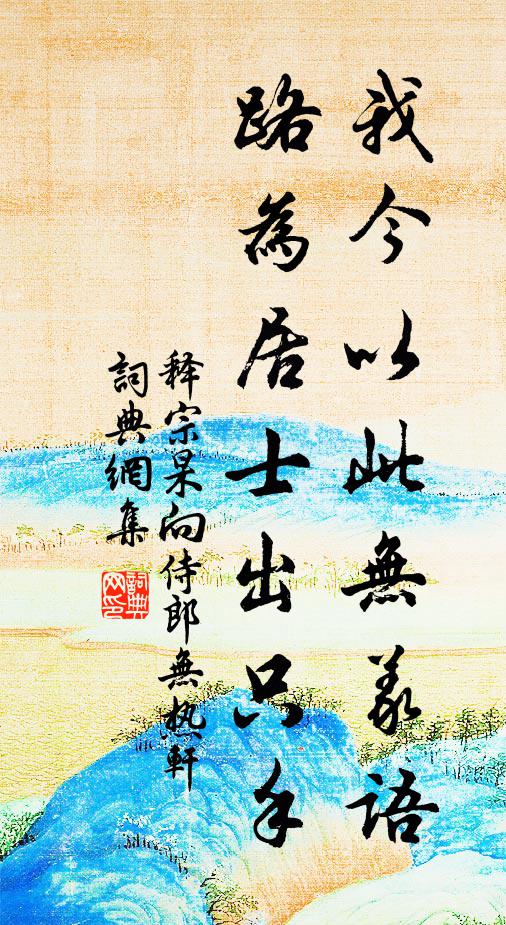 我今以此無義語
路為居士出只手
释宗杲向侍郎無热軒
詞典網集
詞典網印